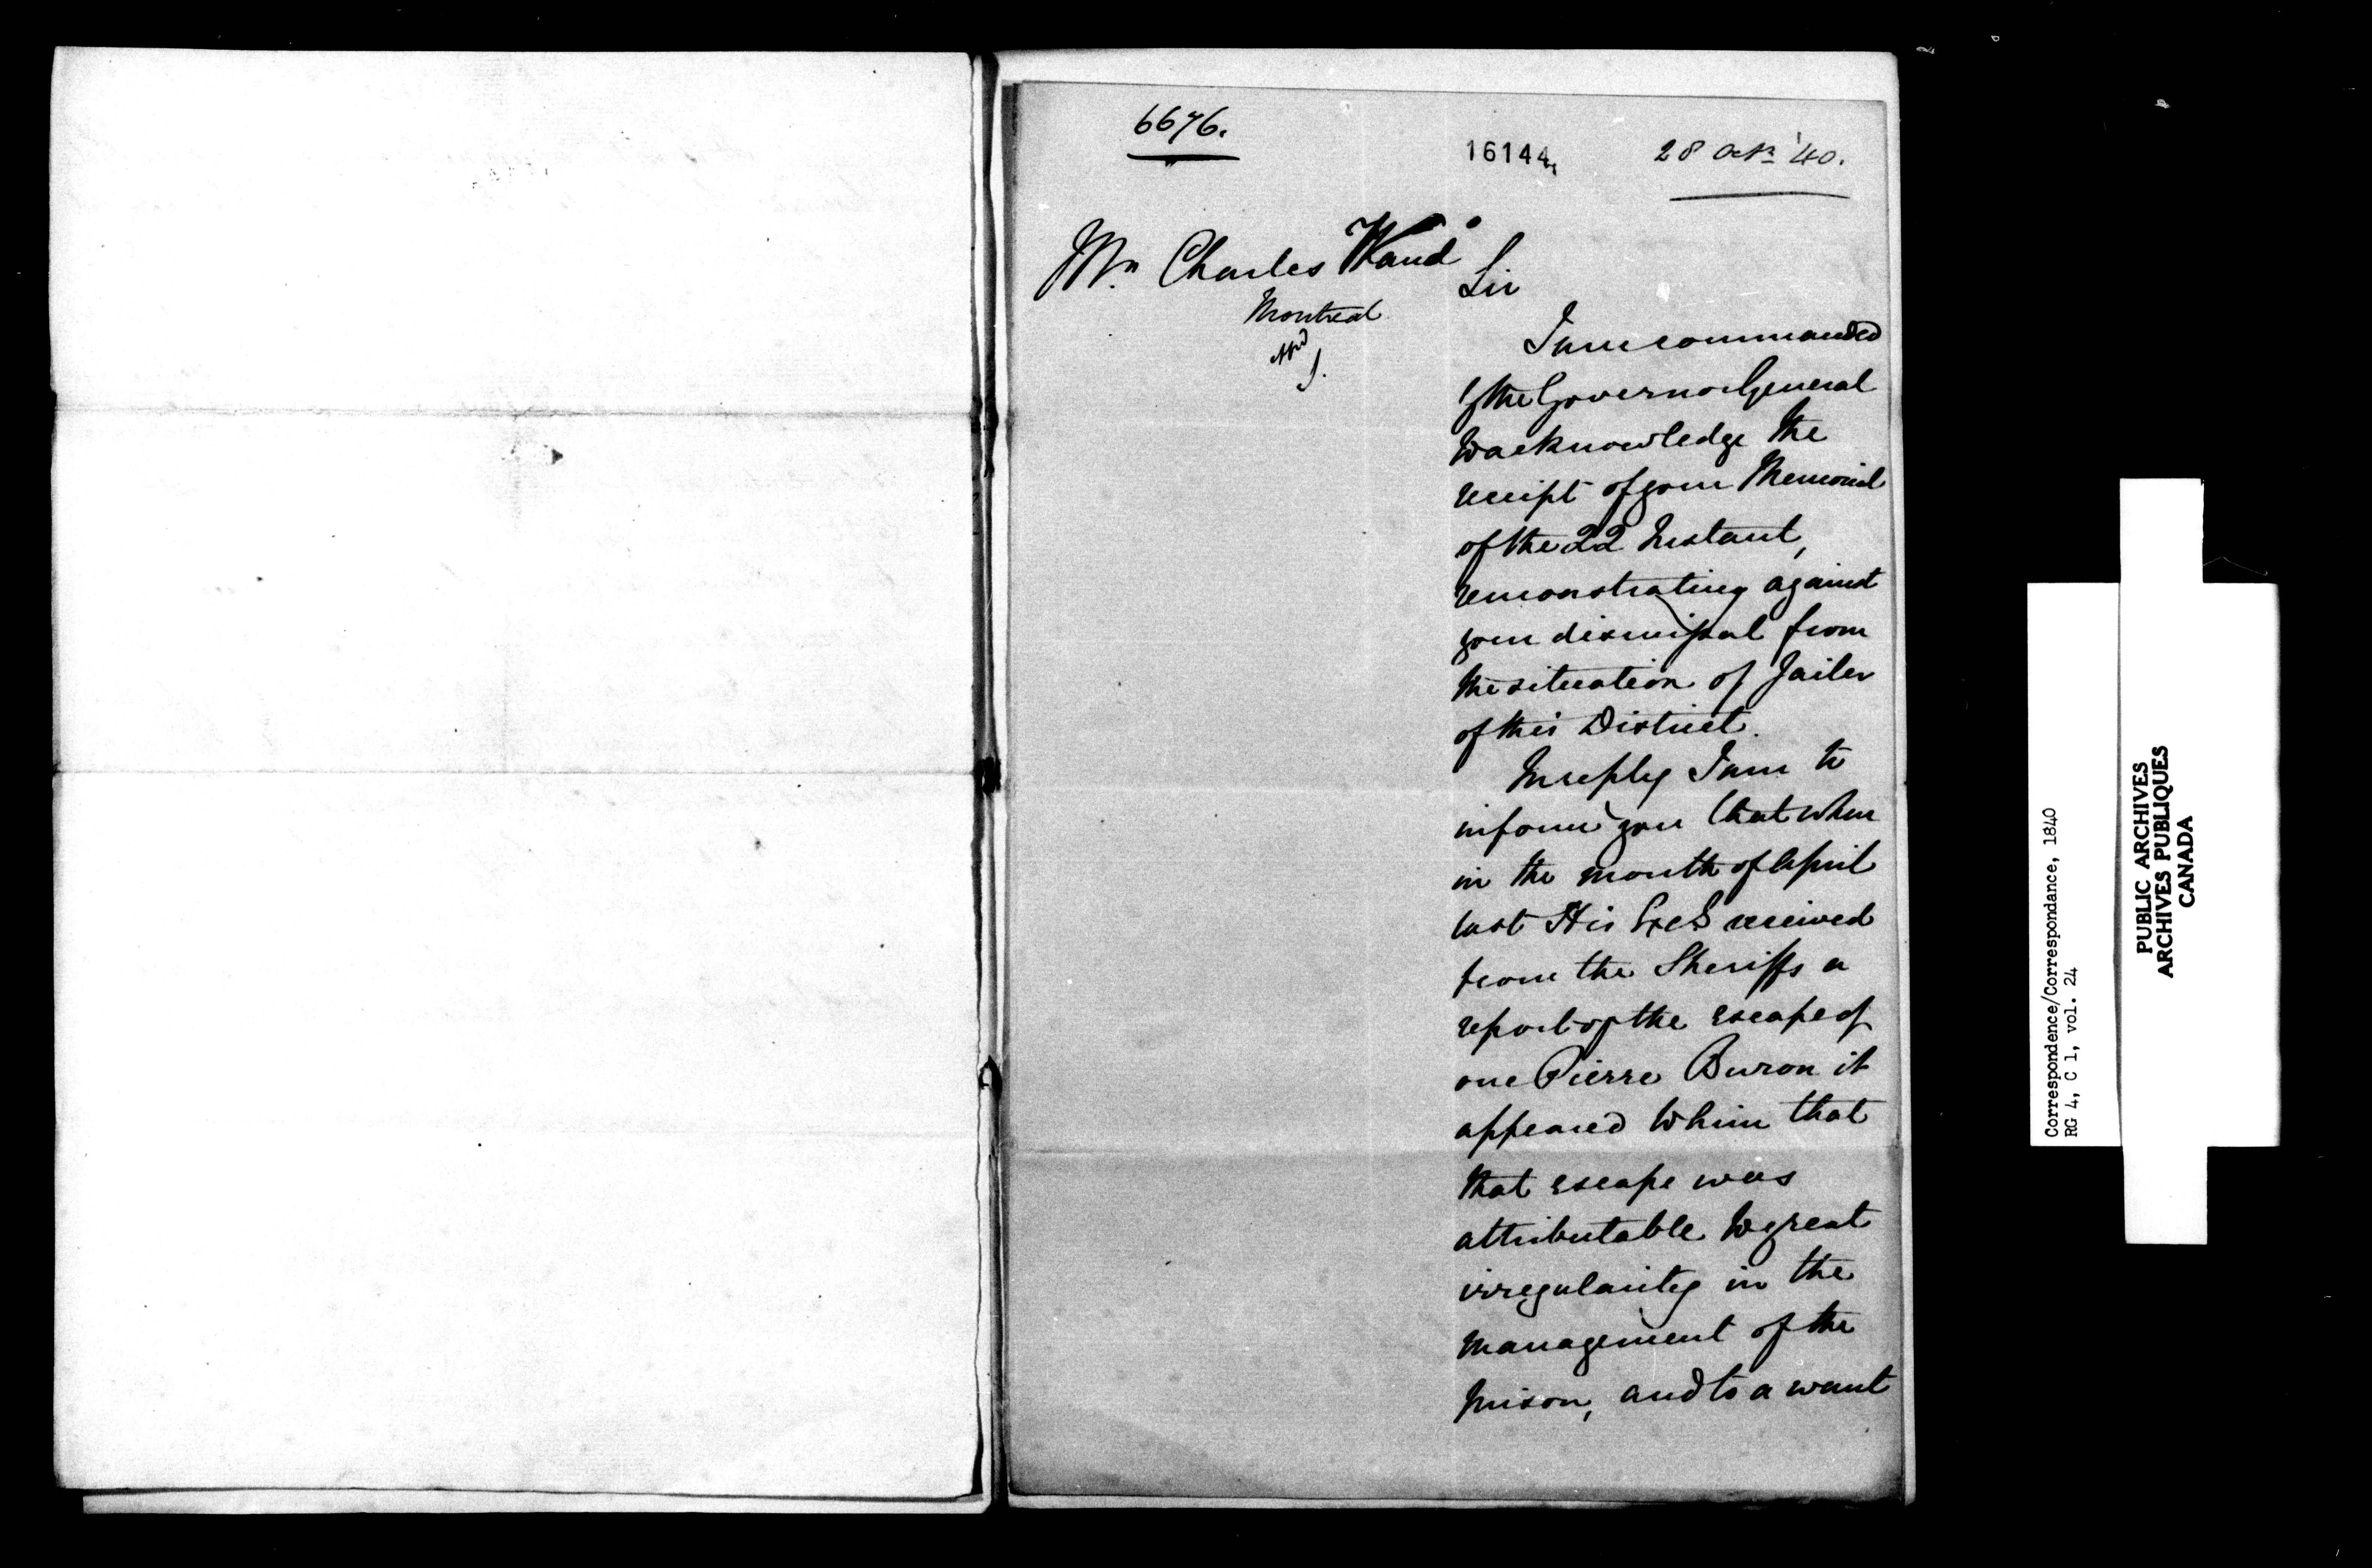 6676.
16144
28 Octr '40.
Mr Charles Wand
Montreal
Sir
I am commanded
by the Governor General
to acknowledge the
receipt of your Memorial
of the 22 Instant,
remonstrating against
your dismissal from
the situation of Jailer
of this District.
In reply I am to
inform you that when
in the month of April
last His Exc received
from the Sheriffs a
report of the escape of
one Pierre Buron it
appeared to him that
that escape was
attributable to great
irregularity in the
management of the
prison, and to a want
Correspondence/Correspondance, 1840
RG 4, C 1, vol. 24
PUBLIC ARCHIVES
ARCHIVES PUBLIQUES
CANADA